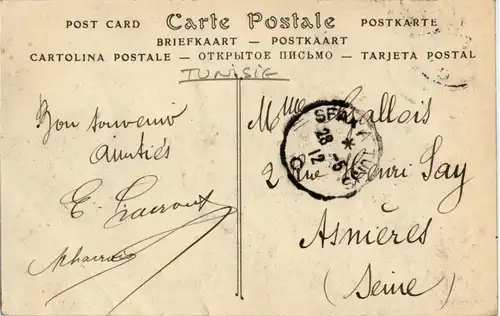 POST CARD Carte Postale POSTKARTE
BRIEFKAART — POSTKAART
CARTOLINA POSTALE — ОТКРЫТОЕ ПИСЬМО — TARJETA POSTAL
TUNISIE
Bon souvenir
amitiés
E.
Mme Lallois
2 Rue Henri Say
Asnières
(Seine)
28 -5
12